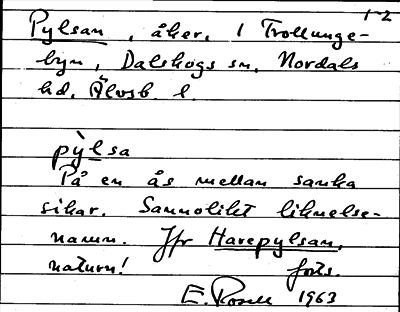 1-2
Pylsan, åker, i Trollunge-
byn, Dalskogs sn, Nordals
hd, Älvsb. l.
pỳlsa
På en ås mellan sanka
sikar. Sannolikt liknelse-
namn. Jfr Harepylsan,
naturn! forts.
E. Rosell 1963